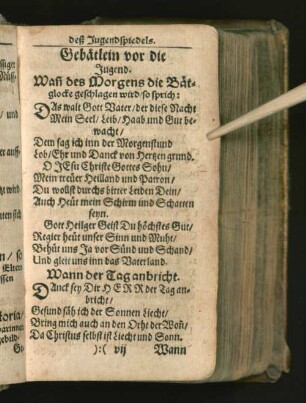 deß Jugendspiegels.
Gebätlein vor die
Jugend.
Wañ des Morgens die Bät-
glocke geschlagen wird so sprich:
DAs walt Gott Vater/ der diese Nacht
Mein Seel/ Leib/ Haab und Gut be-
wachet/
Dem sag ich inn der Morgenstund
Lob/ Ehr und Danck von Hertzen grund.
O JEsu Christe Gottes Sohn/
Mein treuer Heilland und Patron/
Du wollst durchs bitter Leiden Dein/
Auch Heüt mein Schirm und Schatten
seyn.
Gott Heilger Geist Du höchstes Gut/
Regier heüt unser Sinn und Muht/
Behüt uns Ja vor Sünd und Schand/
Und gleit uns inn das Vaterland.
Wann der Tag anbricht.
DAnck sey Dir HERR der Tag an-
bricht/
Gesund säh ich der Sonnen Liecht/
Bring mich auch an den Orht der Woñ/
Da Christus selbst ist Liecht und Sonn.
):( vij Wann